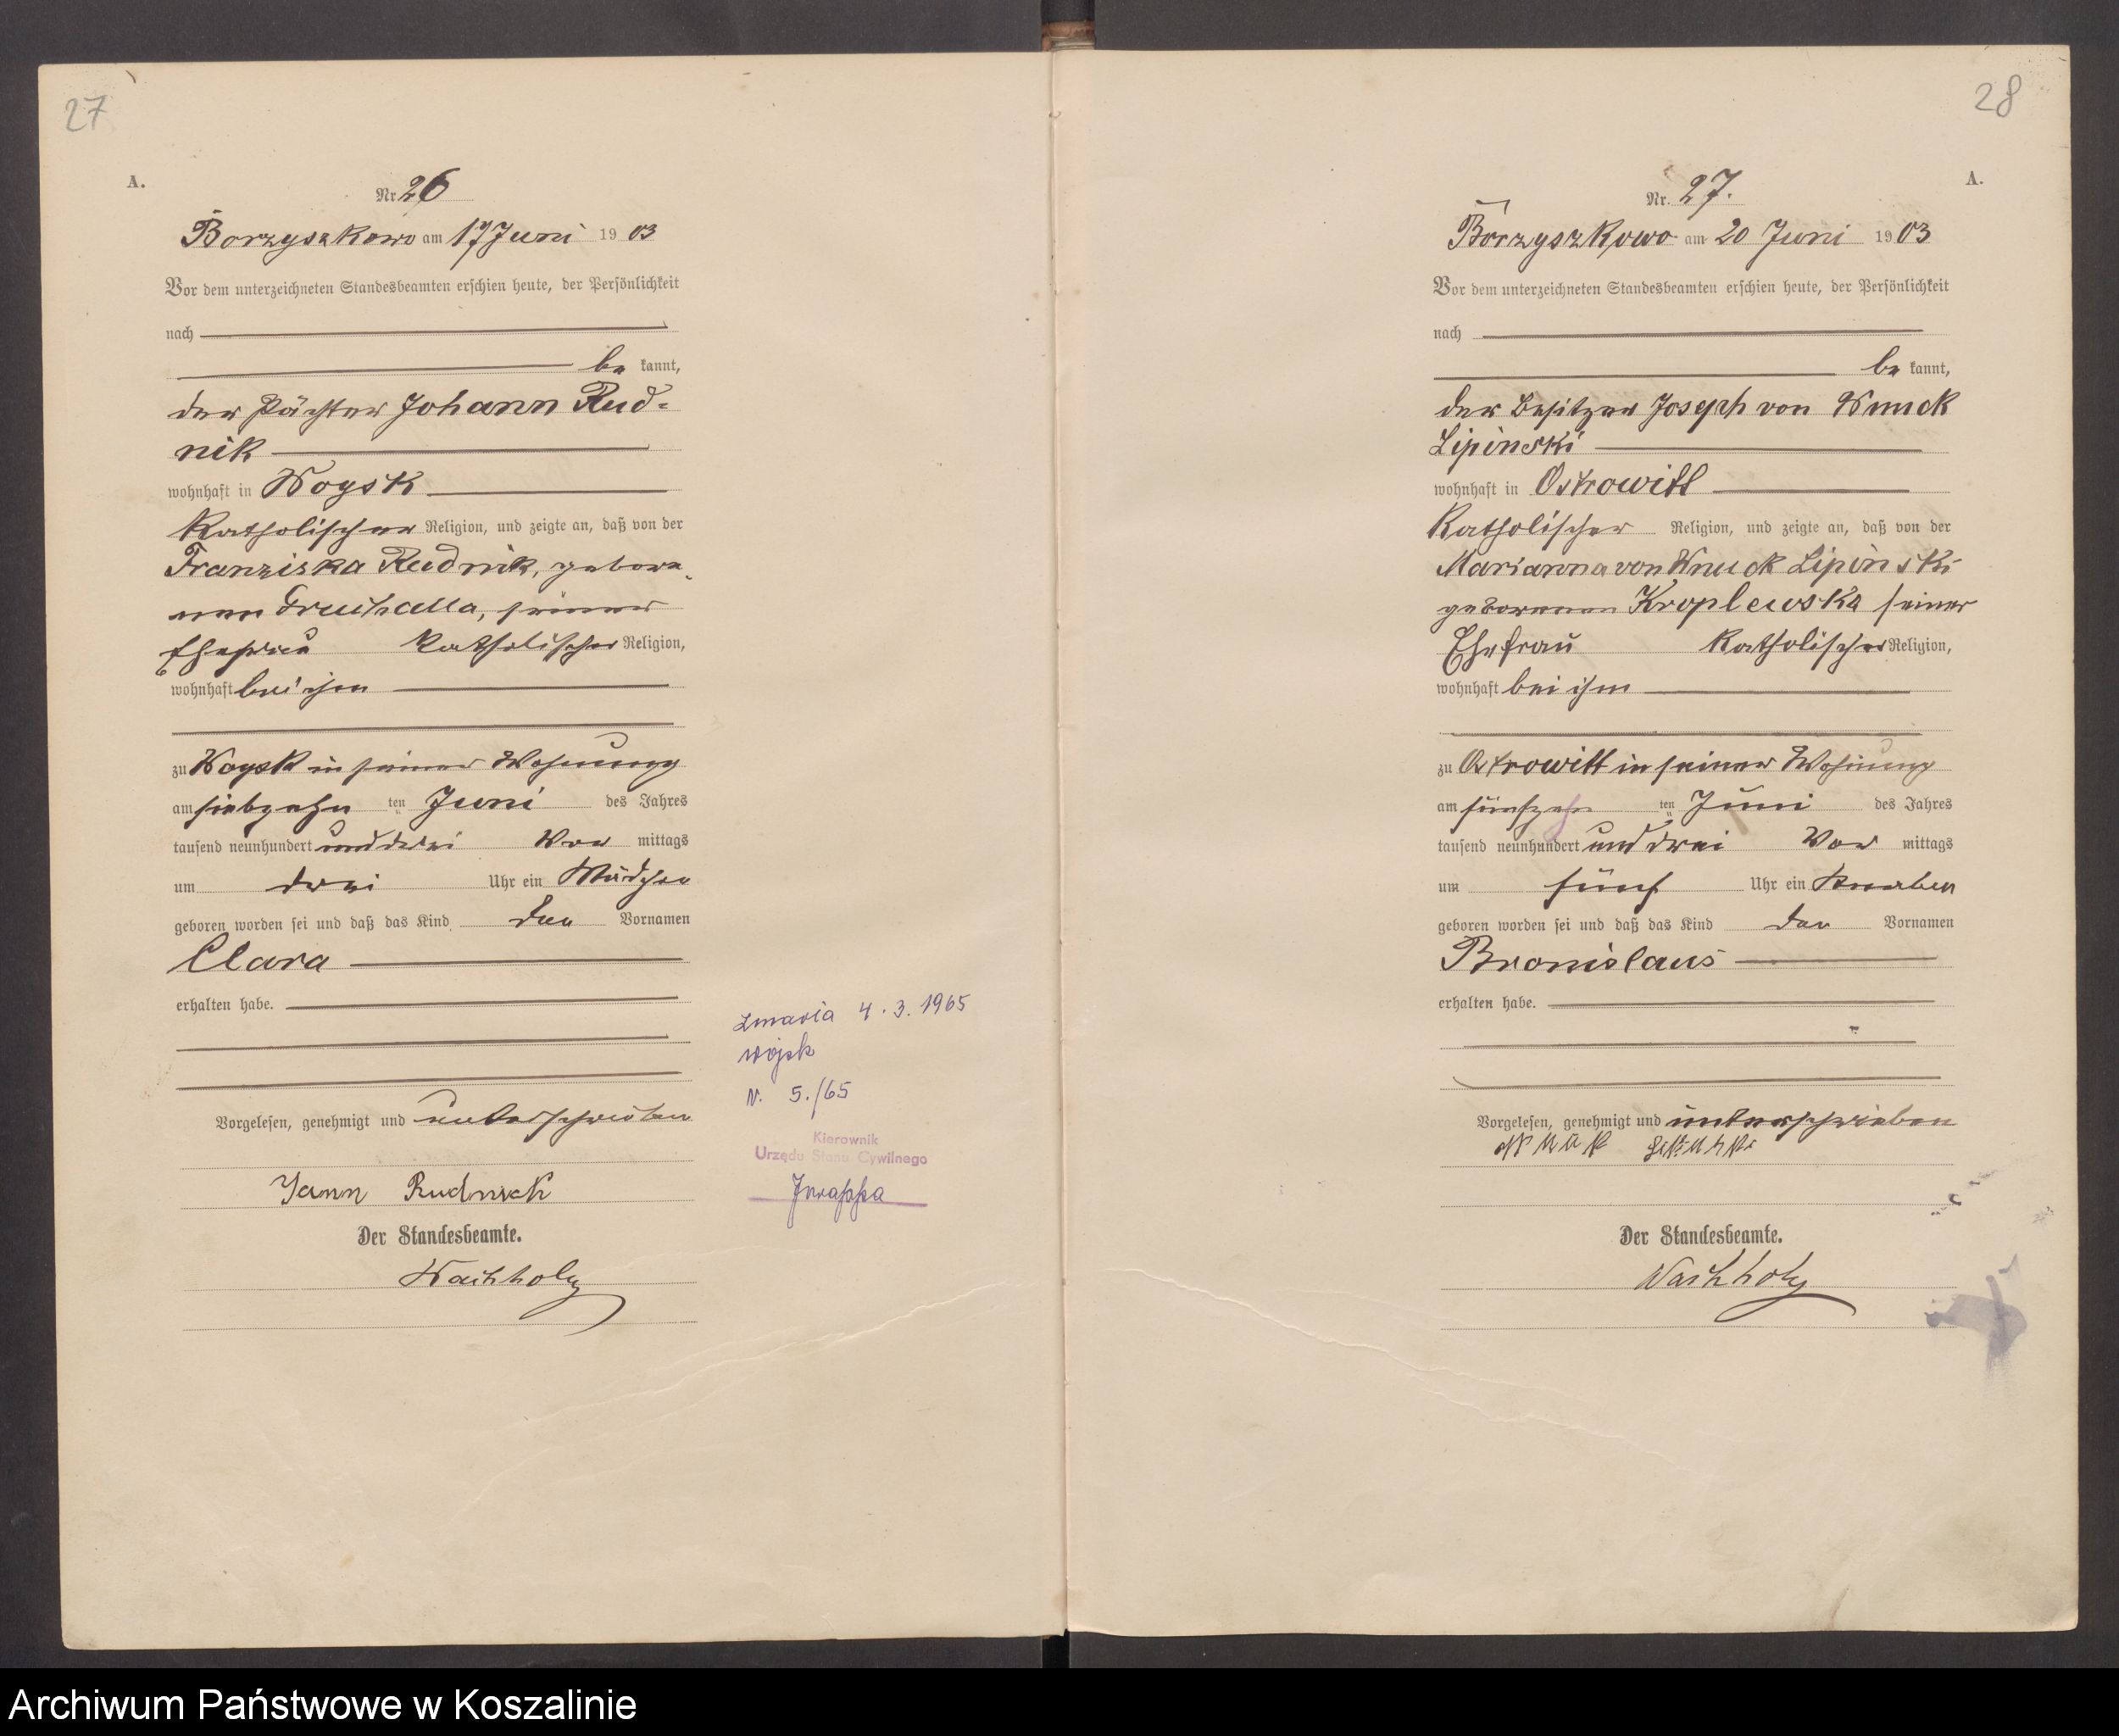 27
A.
Nr 26
Borzyszkowo am 17 Juni 1903
Vor dem unterzeichneten Standesbeamten erschien heute, der Persönlichkeit
nach
be kannt,
der Pächter Johann Rud-
nik
wohnhaft in Woysk
katholischer Religion, und zeigte an, daß von der
Franziska Rudnik, gebore-
nen seiner
Ehefrau katholischer Religion,
wohnhaft bei ihm
zu Woysk in seiner Wohnung
am siebzehn ten Juni des Jahres
tausend neunhundert und drei Vor mittags
um drei Uhr ein Mädchen
geboren worden sei und daß das Kind den Vornamen
Clara
erhalten habe.
Vorgelesen, genehmigt und unterschrieben
Jann Rudnick
Der Standesbeamte.
Wachholz
zmarła 4.3.1965
wojsk
N. 5./65
Kierownik
Urzędu Stanu Cywilnego
28
A.
Nr. 27.
Borzyszkowo am 20 Juni 1903
Vor dem unterzeichneten Standesbeamten erschien heute, der Persönlichkeit
nach
be kannt,
der Besitzer Joseph von Wnuck
Lipinski
wohnhaft in Ostrowitt
katholischer Religion, und zeigte an, daß von der
Marianna von Wnuck Lipinski
geborenen Kroplewska seiner
Ehefrau katholischer Religion,
wohnhaft bei ihm
zu Ostrowitt in seiner Wohnung
am fünfzehn ten Juni des Jahres
tausend neunhundert und drei Vor mittags
um fünf Uhr ein Knaben
geboren worden sei und daß das Kind den Vornamen
Bronislaus
erhalten habe.
Vorgelesen, genehmigt und unterschrieben
Der Standesbeamte.
Wachholz
Archiwum Państwowe w Koszalinie